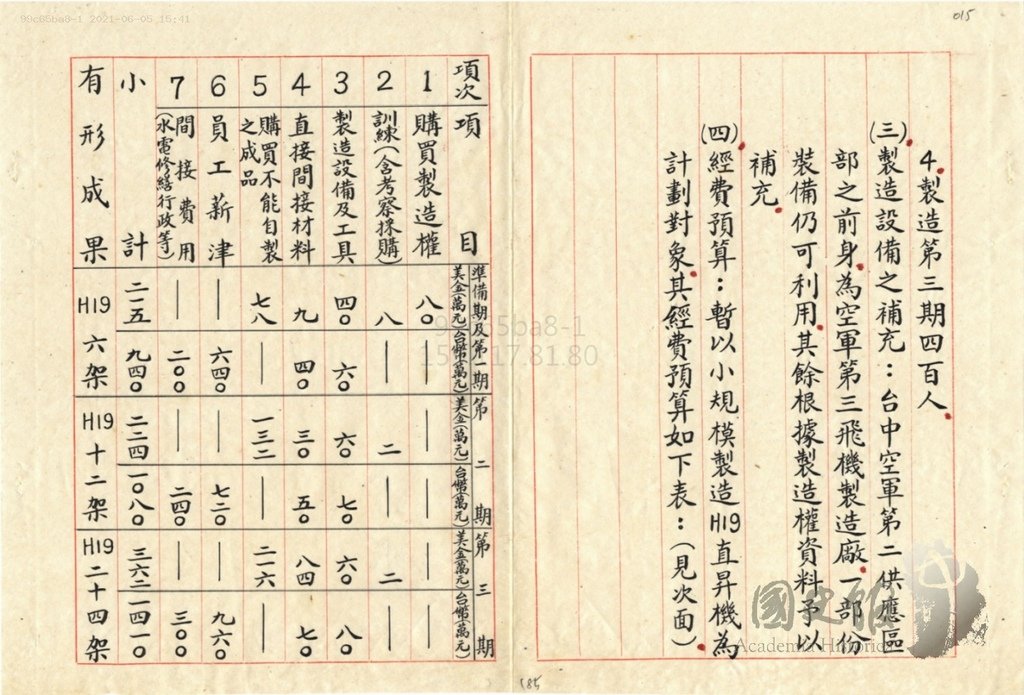 99c65ba8-1 2021-06-05 15:41
015
4.製造第三期四百人。
(三)製造設備之補充：台中空軍第二供應區
部之前身，為空軍第三飛機製造廠，一部份
裝備仍可利用，其餘根據製造權資料予以
補充。
(四)經費預算：暫以小規模製造H19直昇機為
計劃對象，其經費預算如下表：(見次面)
項次 項目 準備期及第一期 美金(萬元) 台幣(萬元) 第二期 美金(萬元) 台幣(萬元) 第三期 美金(萬元) 台幣(萬元)
1 購買製造權 八〇 — — — — —
2 訓練(含考察採購) 八 — 二 — 二 —
3 製造設備及工具 四〇 六〇 六〇 七〇 六〇 八〇
4 直接間接材料 九 四〇 三〇 五〇 八四 七〇
5 購買不能自製之成品 七八 — 一三二 — 二一六 —
6 員工薪津 — 六四〇 — 七二〇 — 九六〇
7 間接費用(水電修繕行政等) — 二〇〇 — 二四〇 — 三〇〇
小計 二一五 九四〇 二二四 一〇八〇 三六二 一四一〇
有形成果 H19六架 H19十二架 H19二十四架
99c65ba8-1
國史館
Academia Historica
185